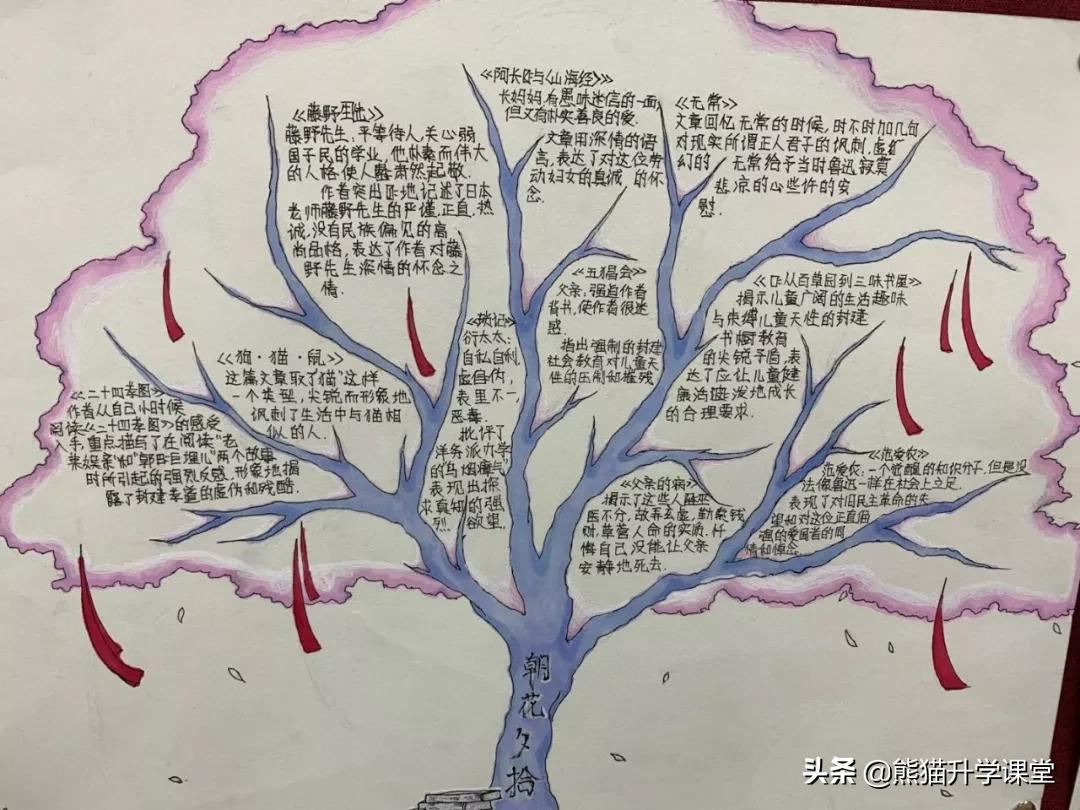 《藤野先生》
藤野先生：平等待人，关心弱
国子民的学业，他朴素而伟大
的人格使人肃然起敬.
作者突出地记述了日本
老师藤野先生的严谨,正直,热
诚,没有民族偏见的高
尚品格，表达了作者对藤
野先生深情的怀念之
情.
《阿长与《山海经》》
长妈妈,有愚昧迷信的一面,
但又有朴实善良的爱.
文章用深情的语
言,表达了对这位劳
动妇女的真诚 的怀
念
《无常》
文章回忆无常的时候,时不时加几句
对现实所谓正人君子的讽刺,虚
幻的 无常给予当时鲁迅寂寞
悲凉的心些许的安
慰.
《五猖会》
父亲：强迫作者
背书,使作者很迷
惑
指出强制的封建
社会教育对儿童天
性的压制和摧残
《从百草园到三味书屋》
揭示儿童广阔的生活趣味
与束缚儿童天性的封建
书橱教育
的尖锐矛盾,表
达了应让儿童健
康活泼地成长
的合理要求.
《狗·猫·鼠》
这篇文章取了"猫"这样
一个类型,尖锐而形象地
讽刺了生活中与猫相
似的人.
《琐记》
衍太太：
自私自利,
虚伪,
表里不一,
恶毒.
批评了
洋务派办学
的"乌烟瘴气"
表现出探
求真知的强
烈 欲望.
《二十四孝图》
作者从自己小时候
阅读《二十四孝图》的感受
入手,重点描写了在阅读"老
莱娱亲"和"郭巨埋儿"两个故事
时所引起的强烈反感,形象地揭
露了封建孝道的虚伪和残酷.
《父亲的病》
揭示了这些人巫
医不分,故弄玄虚,勒索钱
财,草菅人命的实质.忏
悔自己没能让父亲
安静地死去.
《范爱农》
范爱农:一个觉醒的知识分子,但是没
法像鲁迅一样在社会上立足.
表现了对旧民主革命的失
望和对这位正直倔
强的爱国者的同
情和悼念.
朝
花
夕
拾
头条 @熊猫升学课堂